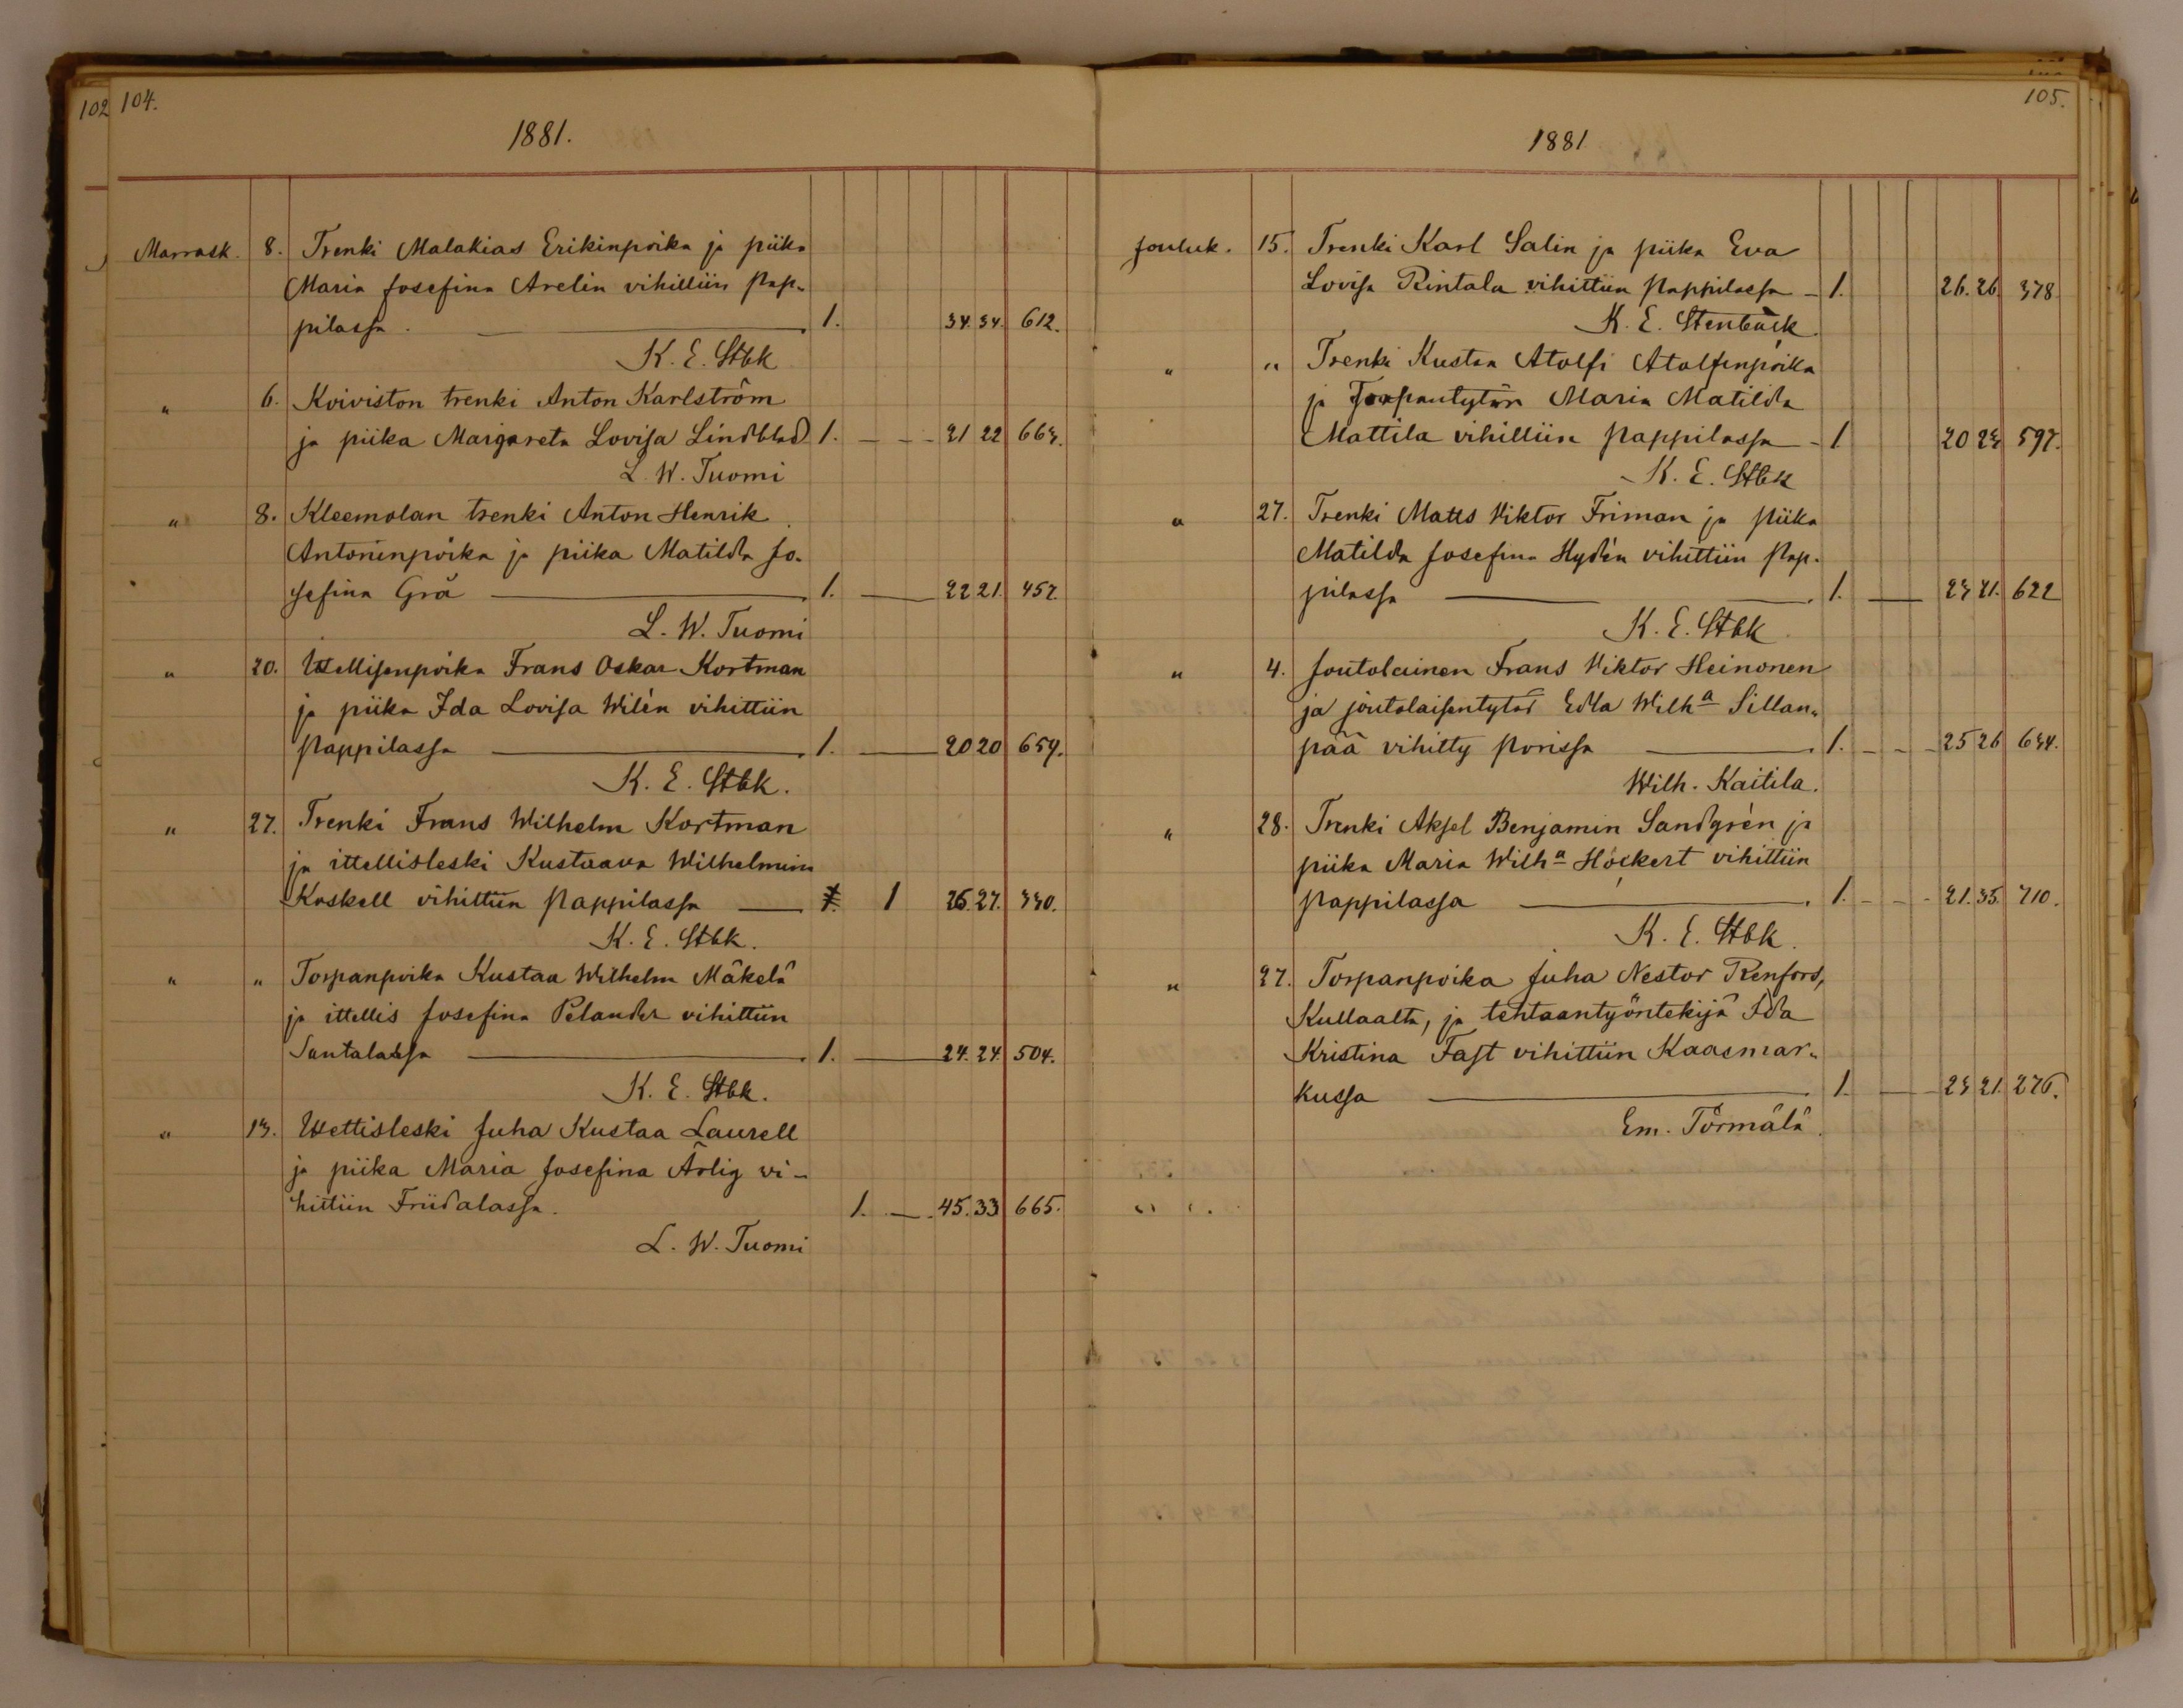 102 104.
1881.
Marrask. 8. Trenki Malakias Erikinpoika ja piika
Maria Josefina Arelin vihittiin Pap-
pilassa. 1. 34. 34. 612.
K. E. Stbk
" 6. Koiviston trenki Anton Karlström
ja piika Margareta Lovisa Lindblad 1. 21 22 663.
L. W. Tuomi
" 8. Kleemolan trenki Anton Henrik
Antoninpoika ja piika Matilda Jo-
sefina Grå 1. 22 21. 457.
L. W. Tuomi
" 20. Ittellisenpoika Frans Oskar Kortman
ja piika Ida Lovisa Wilén vihittiin
Pappilassa 1. 20 20 659.
K. E. Stbk.
" 27. Trenki Frans Wilhelm Kortman
ja ittellisleski Kustaava Wilhelmina
Koskell vihittiin Pappilassa 1 26. 27. 330.
K. E. Stbk.
" " Torpanpoika Kustaa Wilhelm Mäkelä
ja ittellis Josefina Pelander vihittiin
Santalassa 1. 24. 24. 504.
K. E. Stbk.
" 13. Ittellisleski Juha Kustaa Laurell
ja piika Maria Josefina Ärlig vi-
hittiin Friidalassa. 1. 45. 33 665.
L. W. Tuomi
105.
1881
Jouluk. 15. Trenki Karl Salin ja piika Eva
Lovisa Rintala vihittiin Pappilassa 1. 26. 26. 378.
K. E. Stenbäck.
" " Trenki Kustaa Atolfi Atolfinpoika
ja Torpantytär Maria Matilda
Mattila vihittiin Pappilassa 1 20 23 597.
K. E. Stbk
" 27. Trenki Matts Viktor Friman ja piika
Matilda Josefina Hydén vihittiin Pap-
pilassa 1. 23 21. 622
K. E. Stbk
" 4. Joutolainen Frans Viktor Heinonen
ja joutolaisentytär Edla Wilha Sillan-
pää vihitty Porissa 1. 25 26 634.
Wilh. Kaitila.
" 28. Trenki Aksel Benjamin Sandgrén ja
piika Maria Wilha Höckert vihittiin
Pappilassa 1. 21. 35. 710.
K. E. Stbk.
" 27. Torpanpoika Juha Nestor Renfors,
Kullaalta, ja tehtaantyöntekijä Ida
Kristina Fast vihittiin Kaasmar-
kussa 1. 23 21. 276.
Em. Törmälä.